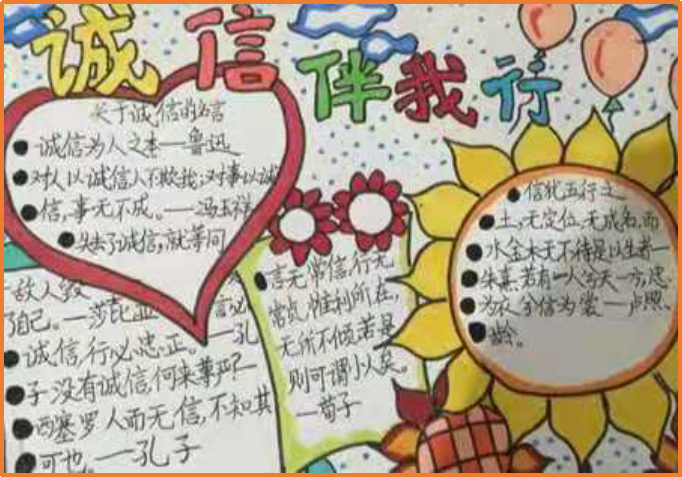 诚信伴我行
关于诚信的名言
诚信为人之本——鲁迅
对人以诚信人不欺我;对事以诚
信,事无不成。——冯玉祥
失去了诚信,就等同
敌人毁
了自己。——莎比亚
言必
诚信,行必忠正。——孔
子 没有诚信,何来尊严?—
西塞罗 人而无信,不知其
可也。——孔子
言无常信,行无
常贞,惟利所在,
无所不倾若是
则可谓小人矣。
—荀子
信犹五行之
土,无定位,无成名,而
水金木无不待是以生者—
朱熹 若有一人今天一方,忠
为衣兮信为裳——卢照
龄。